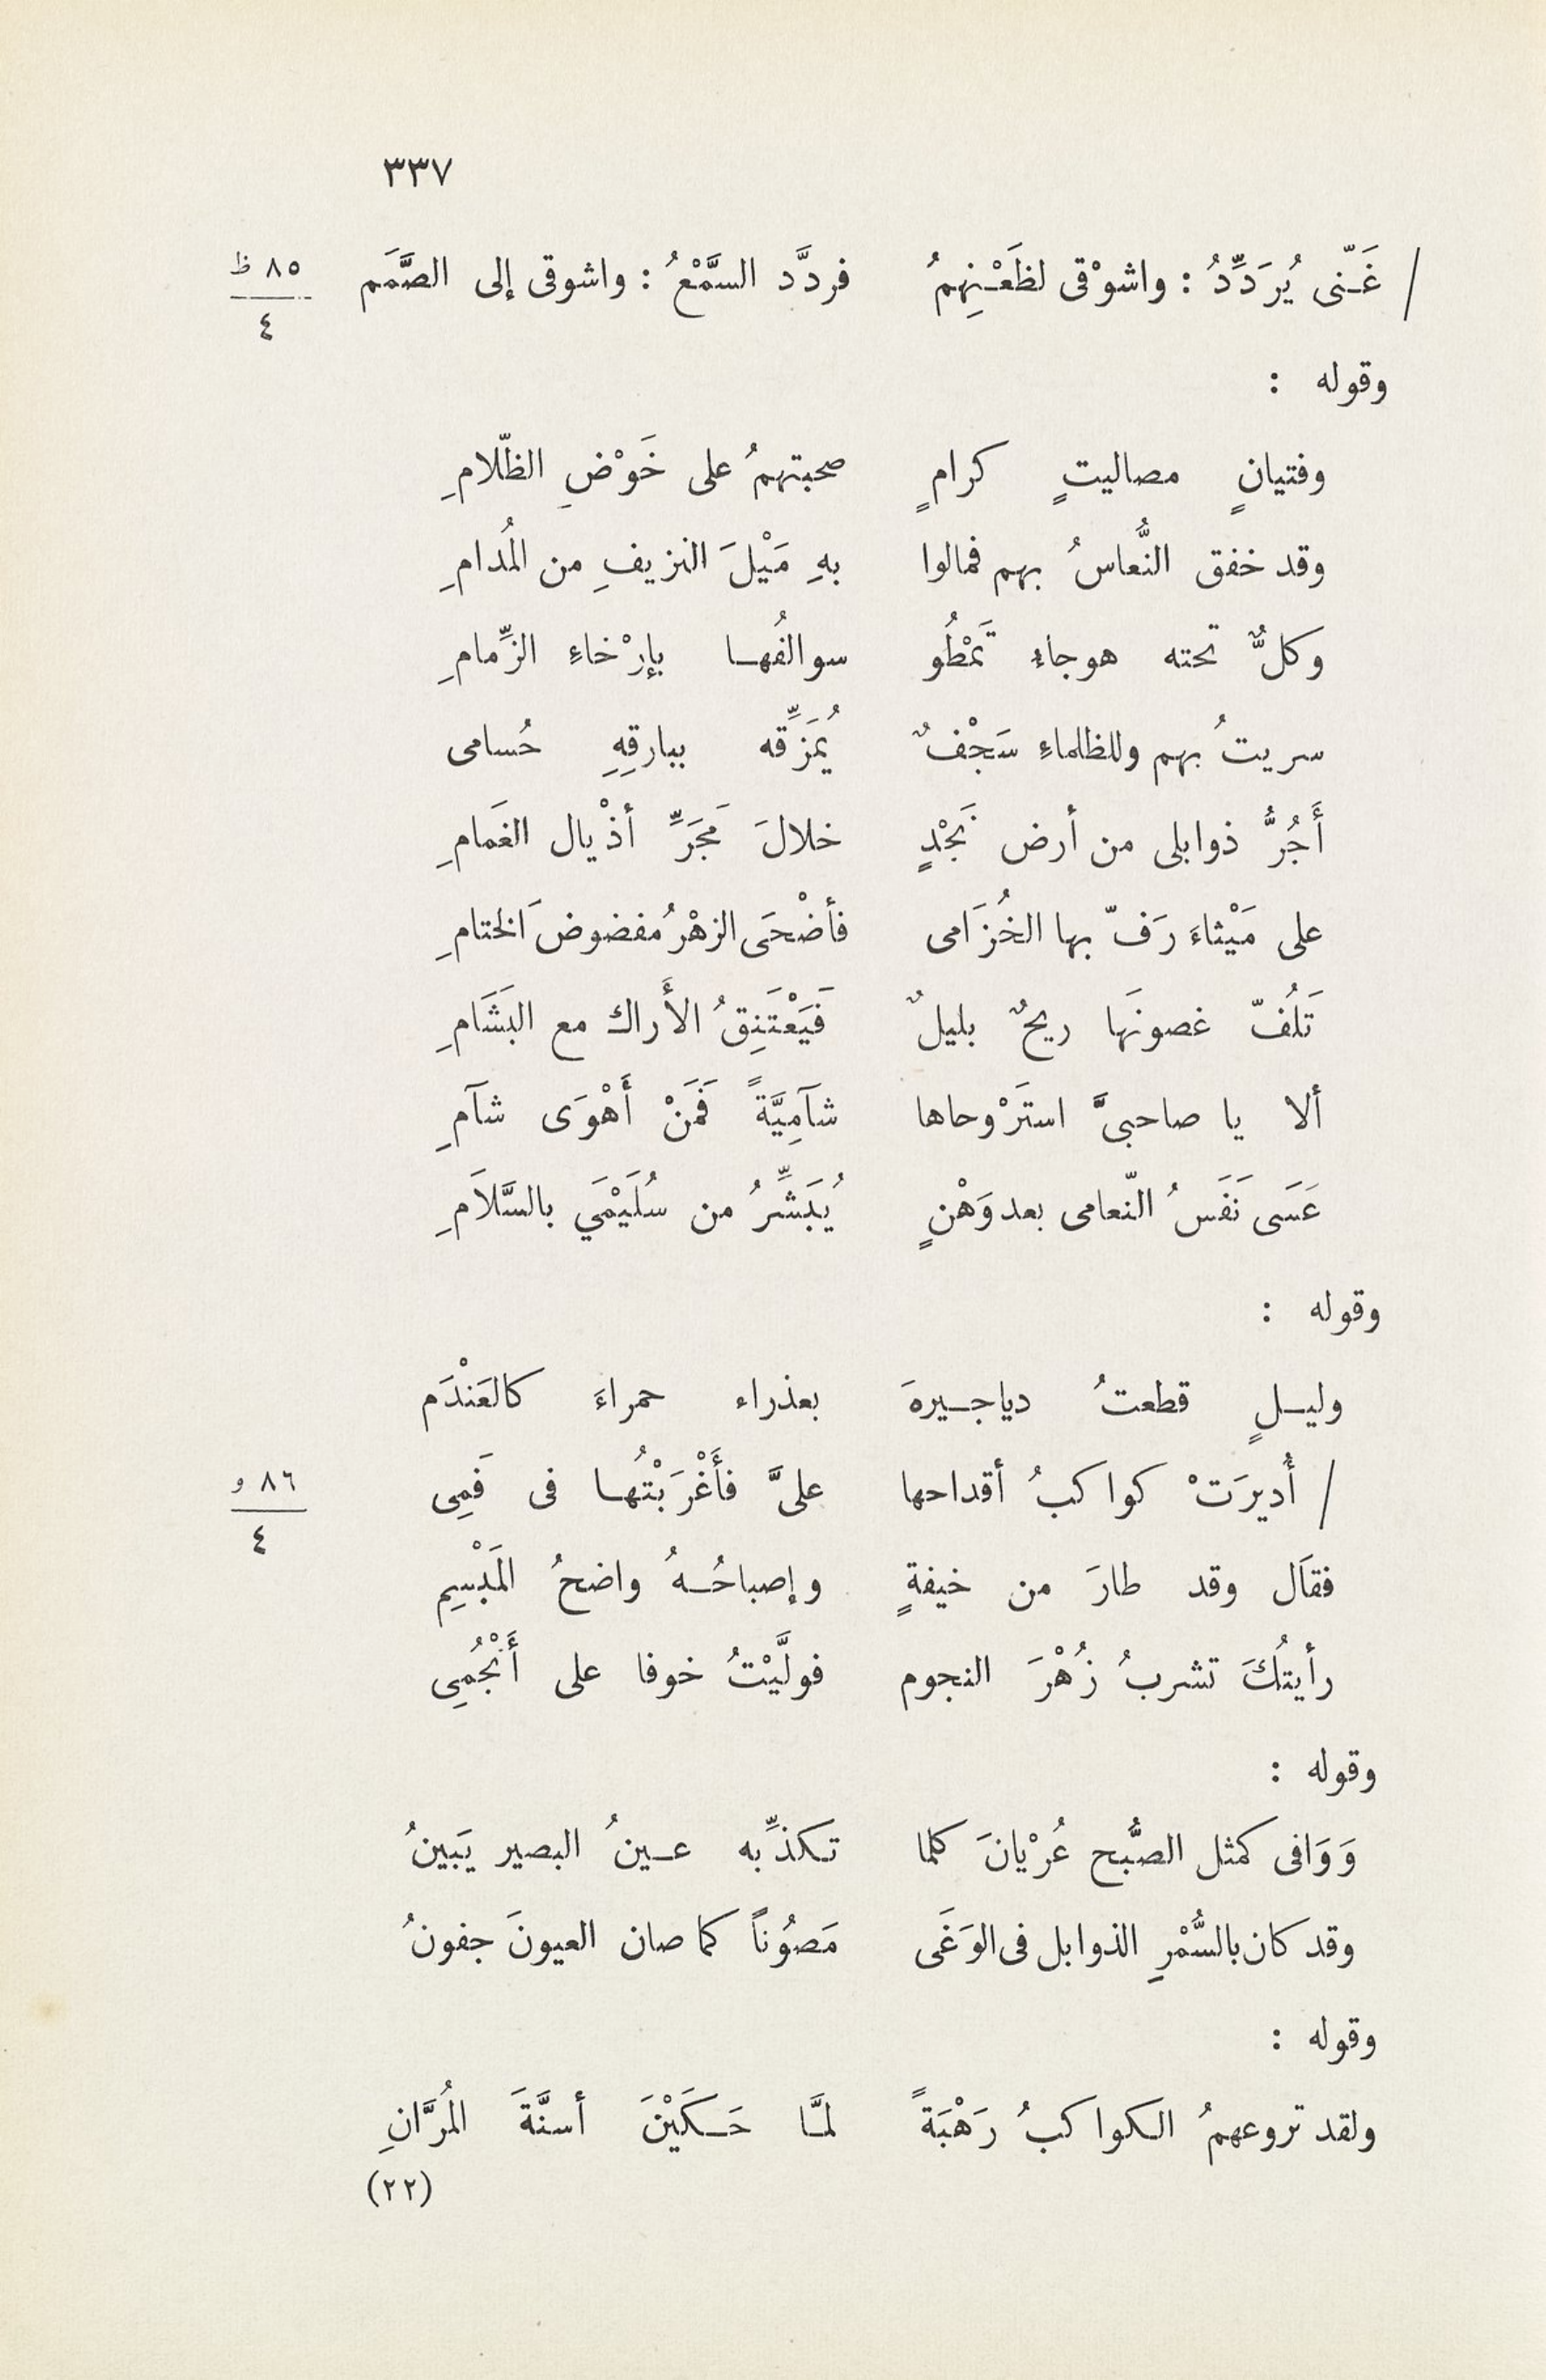 ٣٣٧
/ غَـنّى يُرَدِّدُ : واشوْقى لظَعْـنِهِمُ فردَّد السَّمْعُ : واشوقى إلى الصَّمَم ٨٥ ظ
٤
وقوله :
وفتيانٍ مصاليتٍ كرامٍ صحبتهمُ على خَوْضِ الظّلامِ
وقد خفق النُّعاسُ بهم فمالوا بهِ مَيْلَ النزيفِ من المُدامِ
وكلٌّ تحته هوجاءِ تَمْطُو سوالفُهـا بإرْخاءِ الزِّمامِ
سريتُ بهم وللظلماءِ سَجْفٌ يُمَزِّقه ببارقِهِ حُسامى
أَجُرُّ ذوابلى من أرض نَجْدٍ خلالَ مَجَرِّ أذْيال الغَمامِ
على مَيْثاءَ رَفّ بها الخُزَامى فأضْحَى الزهْرُ مفضوضَ الختامِ
تَلُفّ غصونَها ريحٌ بليلٌ فَيَعْتَنِقُ الأَراك مع البَشَامِ
ألا يا صاحبىَّ استَرْوحاها شآمِيَّةً فَمَنْ أَهْوَى شآمِ
عَسَى نَفَسُ النّعامى بعد وَهْنٍ يُبَشِّرُ من سُلَيْمَي بالسَّلاَمِ
وقوله :
وليـلٍ قطعتُ دياجـيرهَ بعذراء حمراءَ كالعَنْدَم
/ أُديرَتْ كواكبُ أقداحها علىَّ فأَغْرَبْتُهـا فى فَمِى ٨٦ و
٤
فقاَل وقد طارَ من خيفةٍ وإصباحُـهُ واضحُ المَبْسِمِ
رأيتُكَ تشربُ زُهْرَ النجوم فولَّيْتُ خوفا على أَنْجُمِى
وقوله :
وَوَافى كمثل الصُّبح عُرْيانَ كلما تـكذِّبه عـينُ البصير يَبينُ
وقد كان بالسُّمْرِ الذوابل فى الوَغَى مَصوُناً كما صان العيونَ جفونُ
وقوله :
ولقد تروعهمُ الـكواكبُ رَهْبَةً لمَّـا حَـكَيْنَ أسنَّةَ المُرَّانِ
(٢٢)